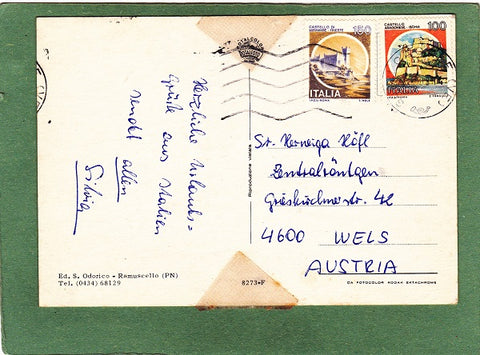 Herzliche Urlaubs=
Grüße aus Italien
sendet allen
Silvia
Ed. S. Odorico - Ramuscello (PN)
Tel. (0434) 68129
8273-F
CASTELLO DI
MIRAMARE - TRIESTE
150
ITALIA
CASTELLO
ARAGONESE - ISCHIA
100
Sr. Herwiga Höfl
Zentralröntgen
Grieskirchnerstr. 42
4600 WELS
AUSTRIA
DA FOTOCOLOR KODAK EKTACHROME